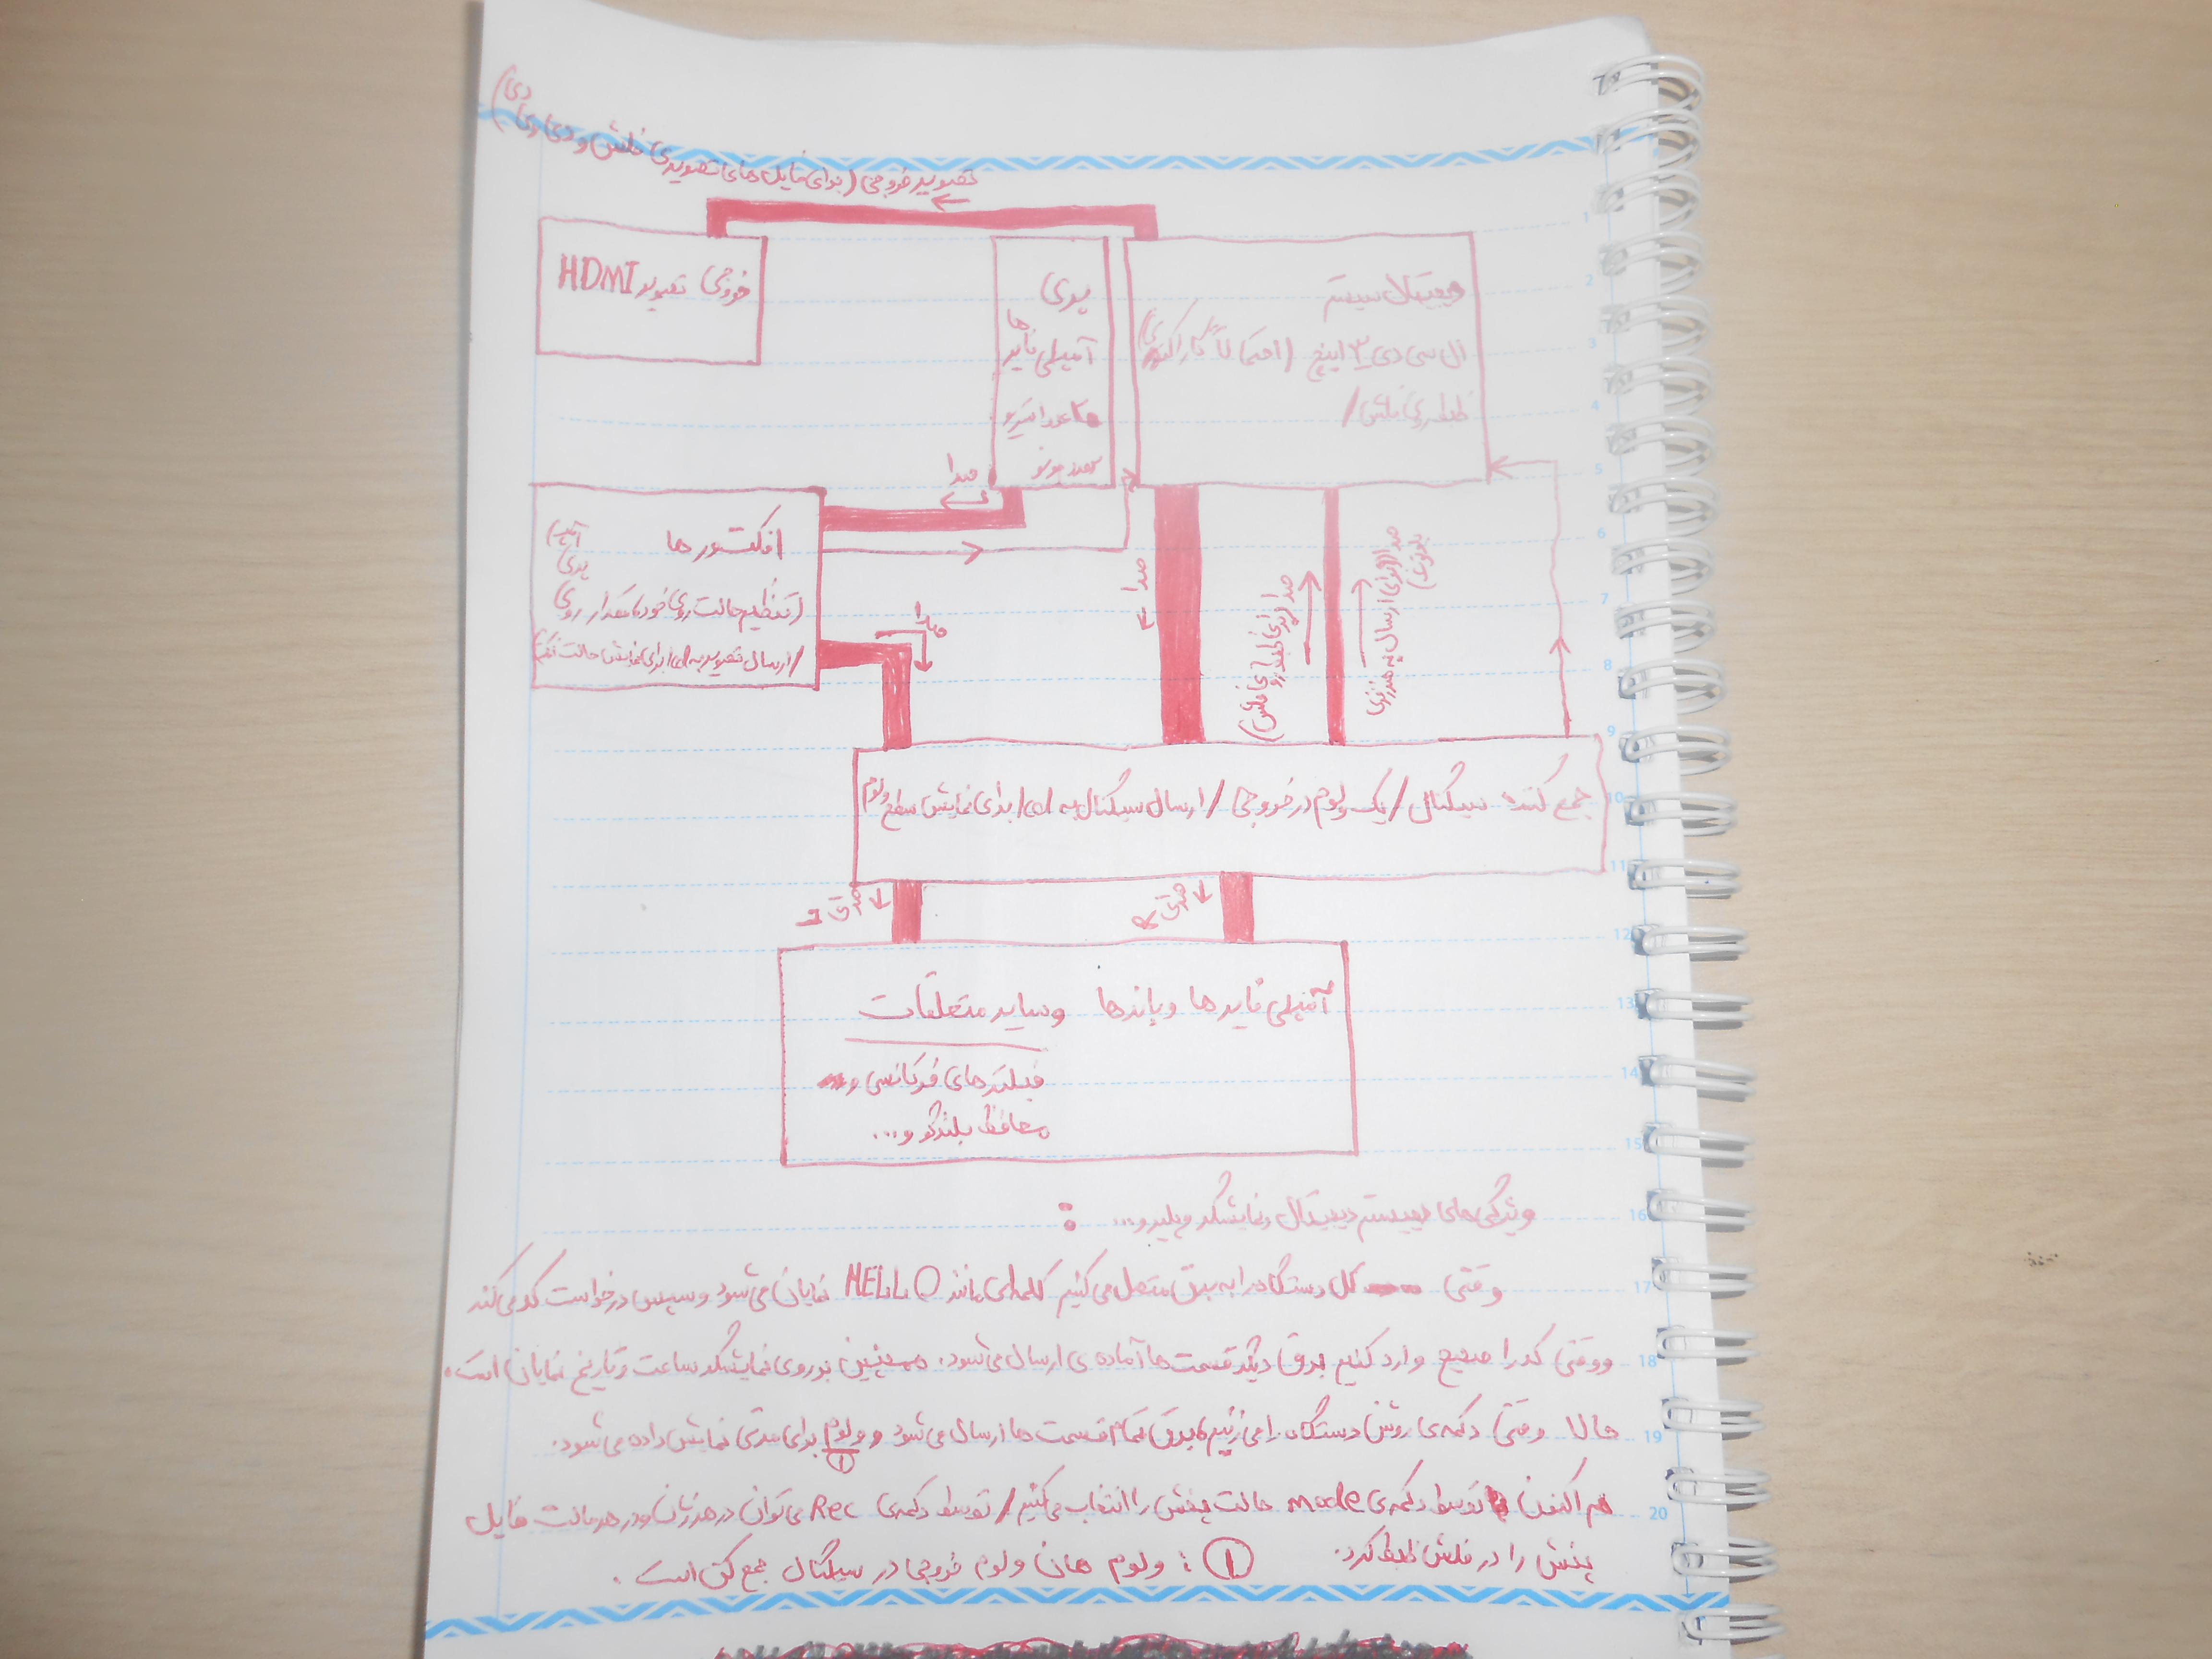 تصویر خروجی (برای فایل های تصویری فلش و دی وی دی)
خروجی تصویر HDMI
پری
آمپلی فایر ها
عدد استریو
عدد مونو
دیجیتال سیستم
ال سی دی ۳ اینچ (احتمالاً کاراکتری)
ظبط روی فلش /
صدا
افکتور ها
(تنظیم حالت روی خود مدار روی پری آمپ)
/ ارسال تصویر به lcd برای نمایش حالت افکت
صدا
صدا
صدا (برای ظبط روی فلش)
صدا (برای ارسال به هندزفری بلوتوث)
جمع کننده سیگنال / یک ولوم در خروجی / ارسال سیگنال به lcd برای نمایش سطح ولوم
صدای L
صدای R
آمپلی فایر ها و باندها وسایر متعلقات
فیلترهای فرکانسی و
محافظ بلندگو و...
ویژگی های سیستم دیجیتال ونمایشگر و پلیر و... :
وقتی کل دستگاه را به برق متصل می کنیم کلمه ای مانند HELLO نمایان می شود و سپس درخواست کد می کند
و وقتی کد را صحیح وارد کنیم برق دیگر قسمت ها آماده ی ارسال می شود. همچنین بر روی نمایشگر ساعت و تاریخ نمایان است.
حالا وقتی دکمه ی روشن دستگاه را می زنیم برق تمام قسمت ها ارسال می شود و ولوم ① برای مدتی نمایش داده می شود.
هم اکنون توسط دکمه ی mode حالت پخش را انتخاب می کنیم / توسط دکمه ی Rec می توان در هر زمان و در هر حالت فایل
پخش را در فلش ظبط کرد.
① : ولوم همان ولوم خروجی در سیگنال جمع کن است.